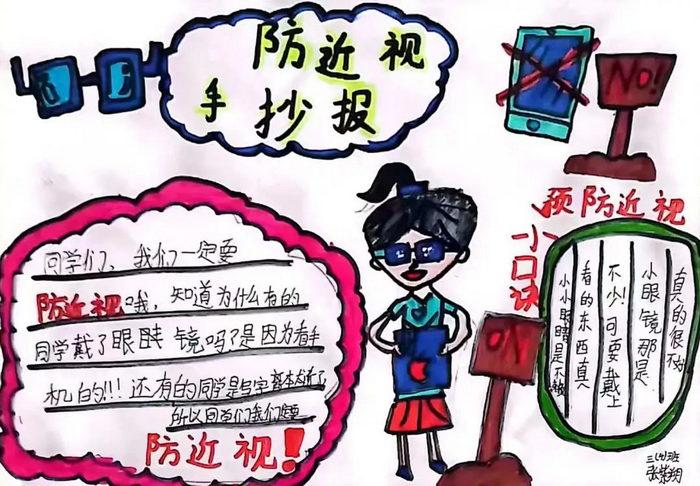 防近视
手抄报
NO!
同学们，我们一定要
防近视哦，知道为什么有的
同学戴了眼睛镜吗?是因为看手
机的!!!还有的同学是写字太近了
所以同学们我们要
防近视!
NO
预防近视
小口诀
小小眼睛是不
看的东西真
不少!可要戴上
小眼镜那是
真的很不好
三(4)班